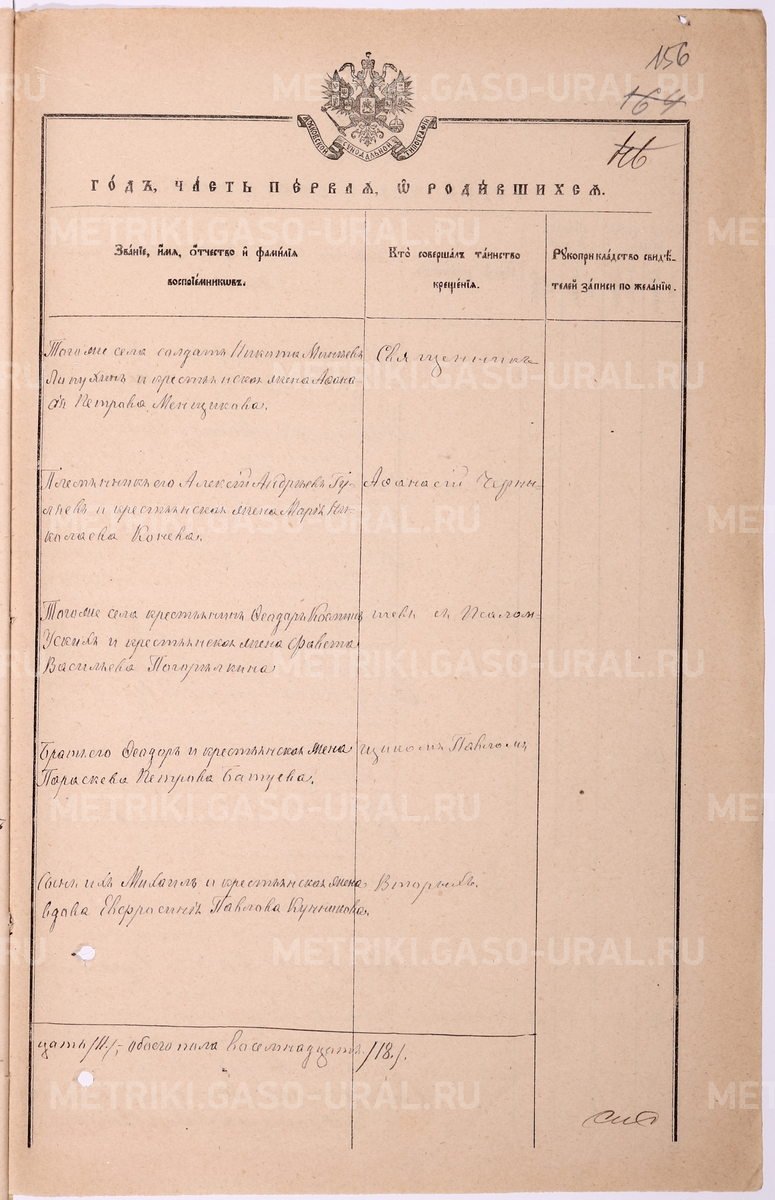 156
164
МОСКОВСКОЙ СѴНОДАЛЬНОЙ ТИПОГРАФІИ
ГО́ДЪ, ЧА́СТЬ ПЕ́РВАѦ, Ѽ РОДИ́ВШИХСѦ.
Зва́нїе, и́мѧ, ѻ҆́тчество и҆ фами́лїѧ
воспрїе́мникѡвъ.
Кто̀ соверша́лъ та́инство
креще́нїѧ.
Рꙋкоприкла́дство свидѣ́-
телей за́писи по жела́нїю.
Тогоже села солдатъ Никита
Лапухинъ и крестьянская жена Афана-
сія Петрова Менщикова.
Священникъ
Племянникъ его Алексій Андреевъ Гу-
ляевъ и крестьянская жена Марія Ни-
колаева Конева.
Афанасій Черны-
Тогоже села крестьянинъ Ѳеодоръ
Ускихъ и крестьянская жена Фавста
Васильева Погорѣлкина
шевъ съ Псалом-
Братъ его Ѳеодоръ и крестьянская жена
Параскева Петрова Батуева.
щикомъ Павломъ
Сынъ ихъ Михаилъ и крестьянская жена
вдова Евфросинія Павлова
Вторыхъ.
цать /11/, обоего пола васемнадцать /18/.
METRIKI.GASO-URAL.RU